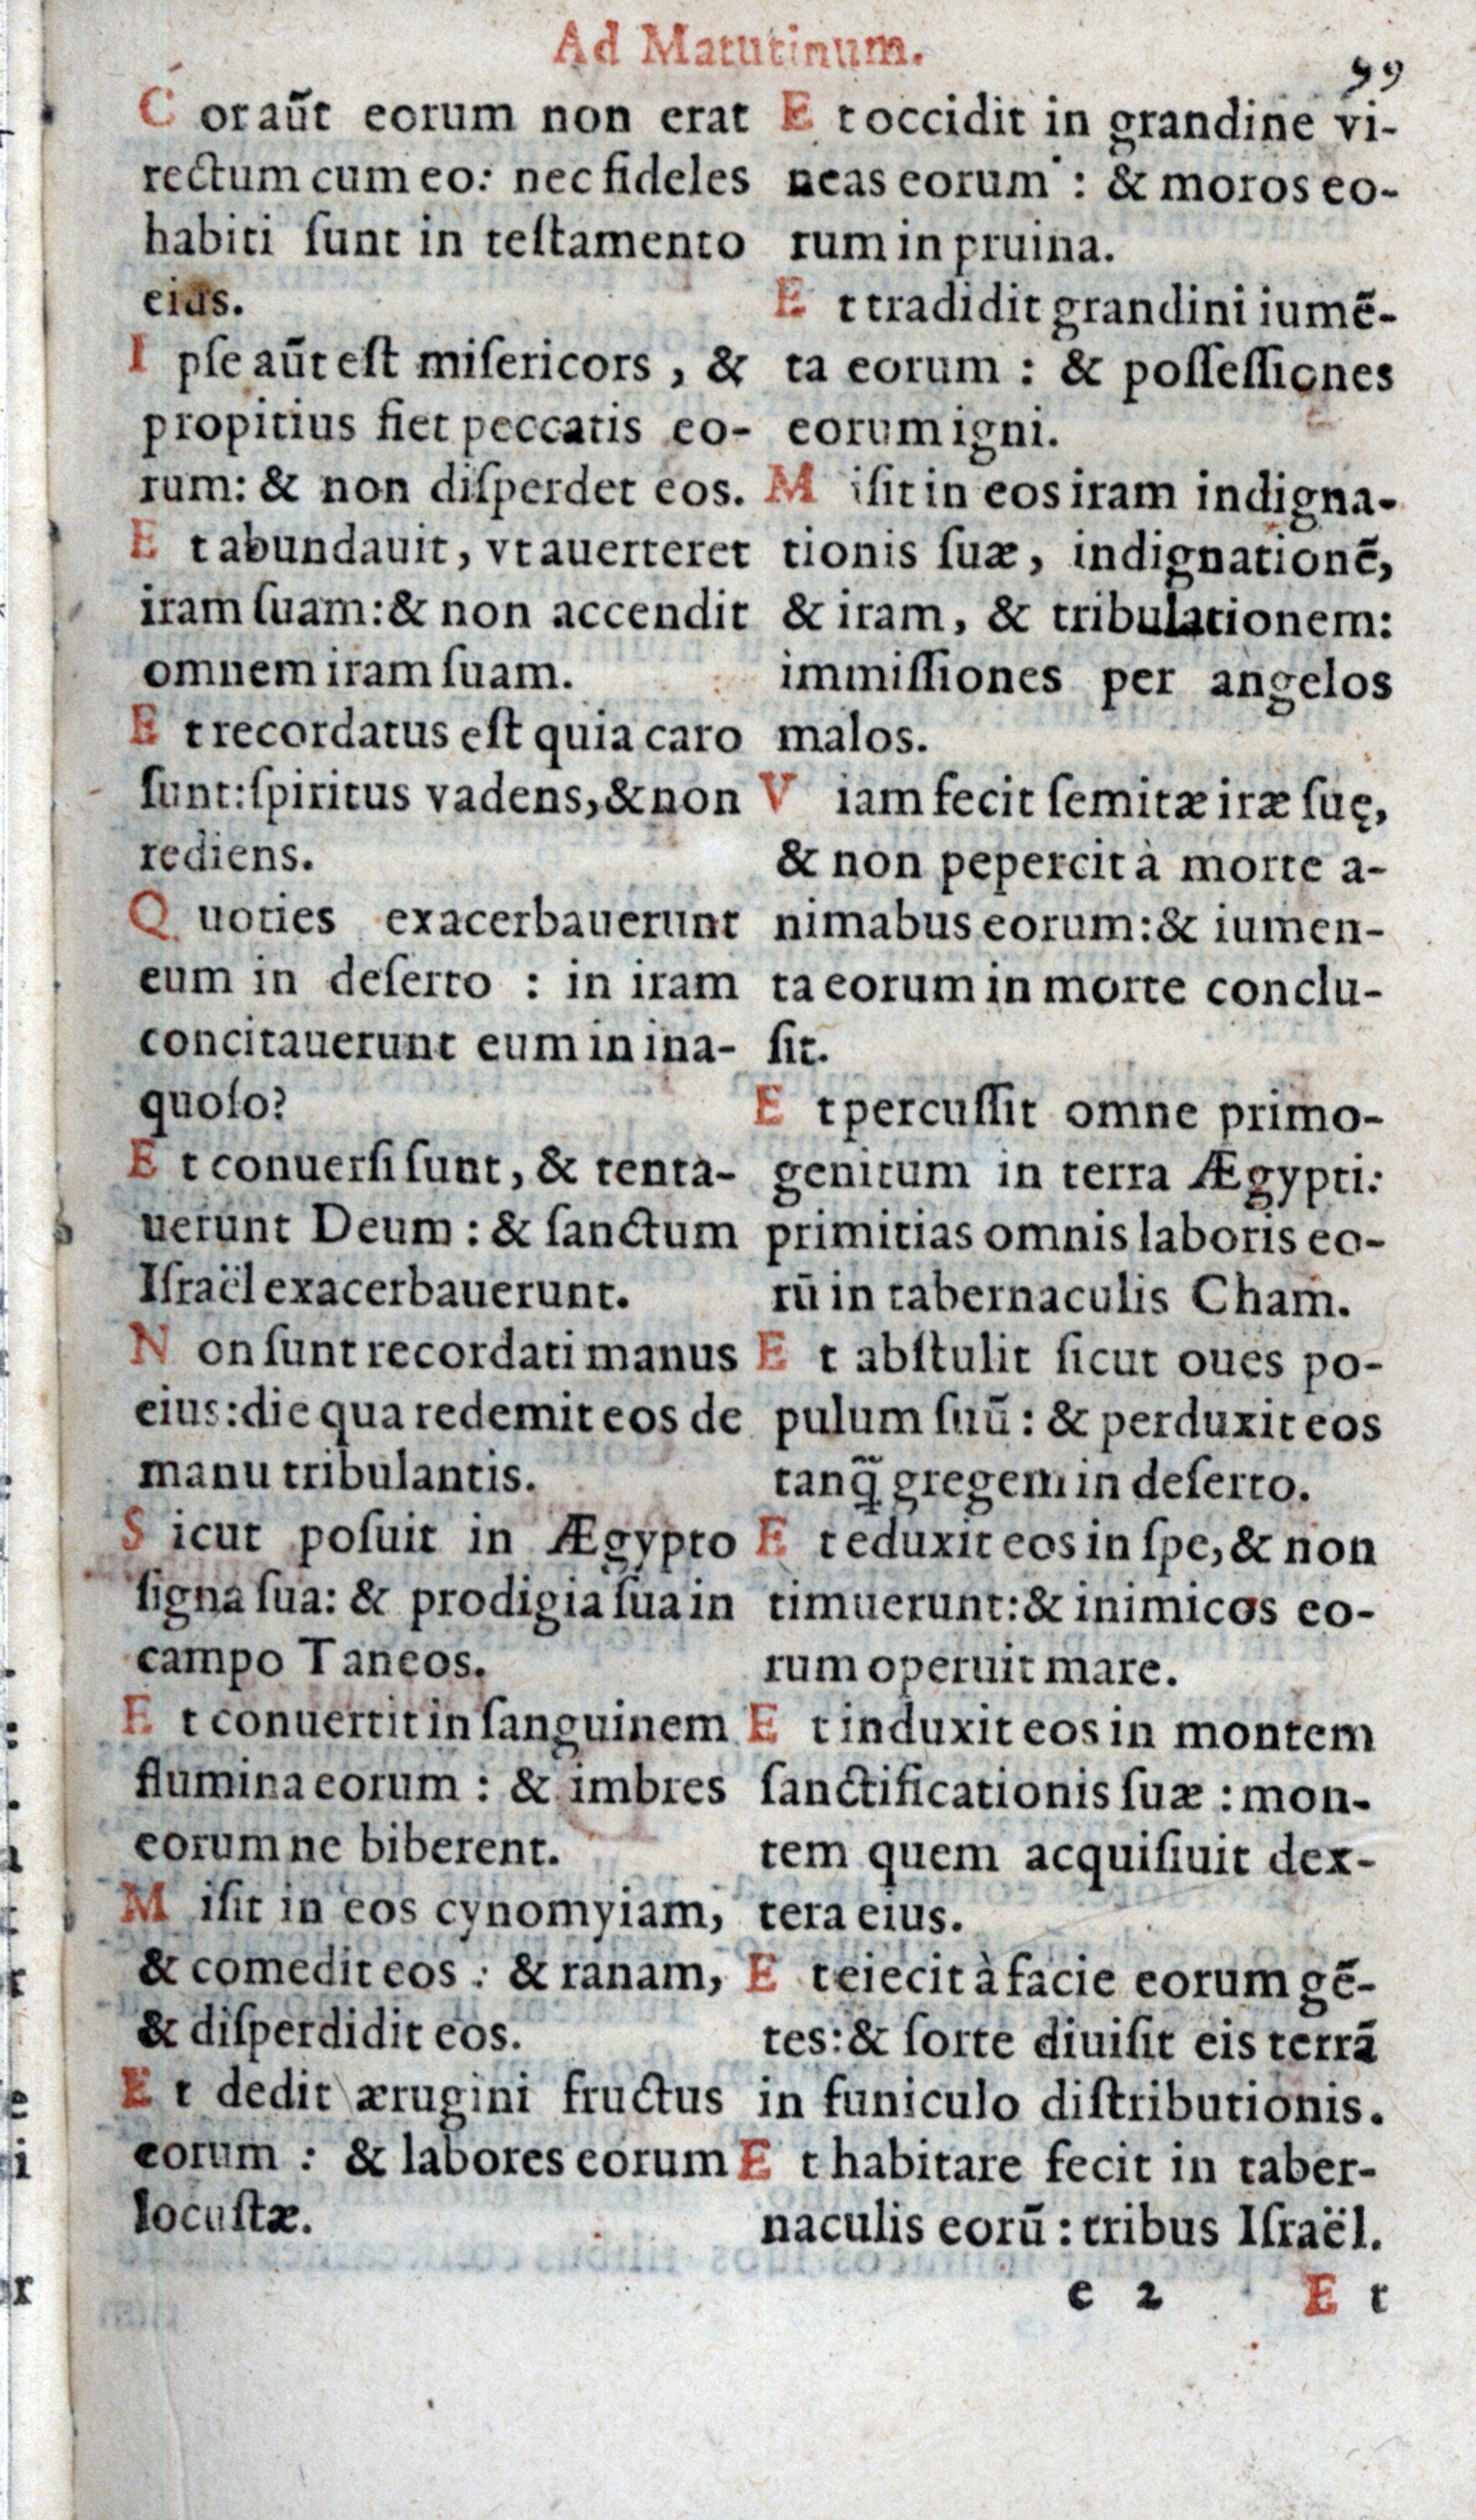 Ad Matutinum.
99
C or aũt eorum non erat
rectum cum eo: nec fideles
habiti ſunt in teſtamento
eius.
I pſe aũt eſt miſericors, &
propitius fiet peccatis eo-
rum: & non diſperdet eos.
E t abundauit, vt auerteret
iram ſuam: & non accendit
omnem iram ſuam.
E t recordatus eſt quia caro
ſunt: ſpiritus vadens, & non
rediens.
Q uoties exacerbauerunt
eum in deſerto : in iram
concitauerunt eum in ina-
quoſo?
E t conuerſi ſunt, & tenta-
uerunt Deum : & ſanctum
Iſraël exacerbauerunt.
N on ſunt recordati manus
eius: die qua redemit eos de
manu tribulantis.
S icut poſuit in Ægypto
ſigna ſua: & prodigia ſua in
campo Taneos.
E t conuertit in ſanguinem
flumina eorum : & imbres
eorum ne biberent.
M iſit in eos cynomyiam,
& comedit eos : & ranam,
& diſperdidit eos.
E t dedit ærugini fructus
eorum : & labores eorum
locuſtæ.
E t occidit in grandine vi-
neas eorum : & moros eo-
rum in pruina.
E t tradidit grandini iumẽ-
ta eorum : & poſſeſſiones
eorum igni.
M iſit in eos iram indigna-
tionis ſuæ, indignationẽ,
& iram, & tribulationem:
immiſſiones per angelos
malos.
V iam fecit ſemitæ iræ ſuę,
& non pepercit à morte a-
nimabus eorum: & iumen-
ta eorum in morte conclu-
ſit.
E t percuſſit omne primo-
genitum in terra Ægypti:
primitias omnis laboris eo-
rũ in tabernaculis Cham.
E t abſtulit ſicut oues po-
pulum ſuũ : & perduxit eos
tanq̃ gregem in deſerto.
E t eduxit eos in ſpe, & non
timuerunt: & inimicos eo-
rum operuit mare.
E t induxit eos in montem
ſanctificationis ſuæ : mon-
tem quem acquiſiuit dex-
tera eius.
E t eiecit à facie eorum gẽ-
tes: & ſorte diuiſit eis terrã
in funiculo diſtributionis.
E t habitare fecit in taber-
naculis eorũ : tribus Iſraël.
e 2 E t